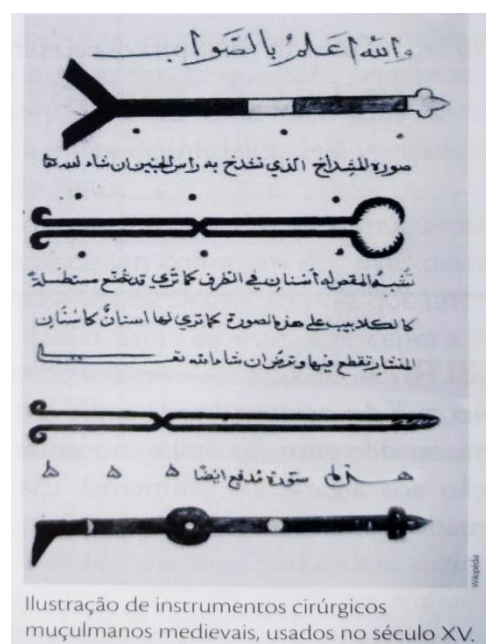 والله اعلم بالصواب
صورة المشداخ الذي تشدخ به راس الجنين ان شاء الله تعا
تشبه المقص له أسنان في الطرف كما ترى قد تصنع مستطيلة
كالكلاليب على هذه الصورة كما ترى لها اسنان كاسنان
المنشار تقطع فيها وترض ان شاء الله تعـ
صورة مدفع ايضا
Wikipédia
Ilustração de instrumentos cirúrgicos
muçulmanos medievais, usados no século XV.